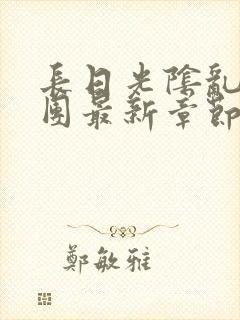 長日光陰亂
團最新章節
鄭敏雅